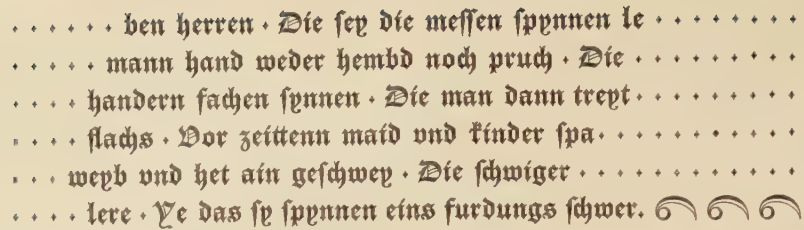 . . . . . . ben herren · Die sey die messen spynnen le . . . . . . . .
. . . . . mann hand weder hembd noch pruch · Die . . . . . . . . .
. . . . handern sachen synnen · Die man dann treyt . . . . . . . . .
. . . . flachs · Vor zeittenn maid vnd kinder spa . . . . . . . . . .
. . . weyb vnd het ain geschwey · Die schwiger . . . . . . . . . . .
. . . . lere · Ye das sy spynnen eins furdungs schwer.